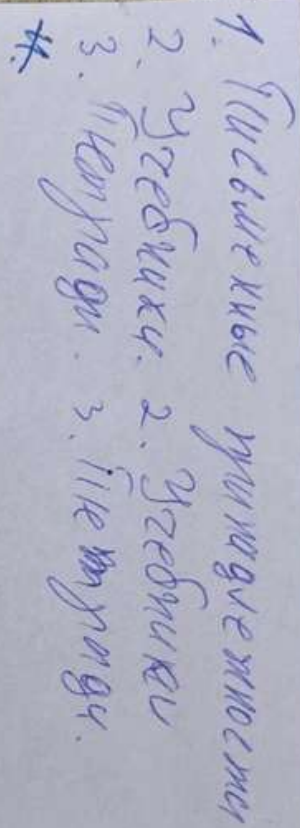 1. Письменные принадлежности
2. Учебники. 2. Учебники
3. Тетради. 3. Тетради.
4.